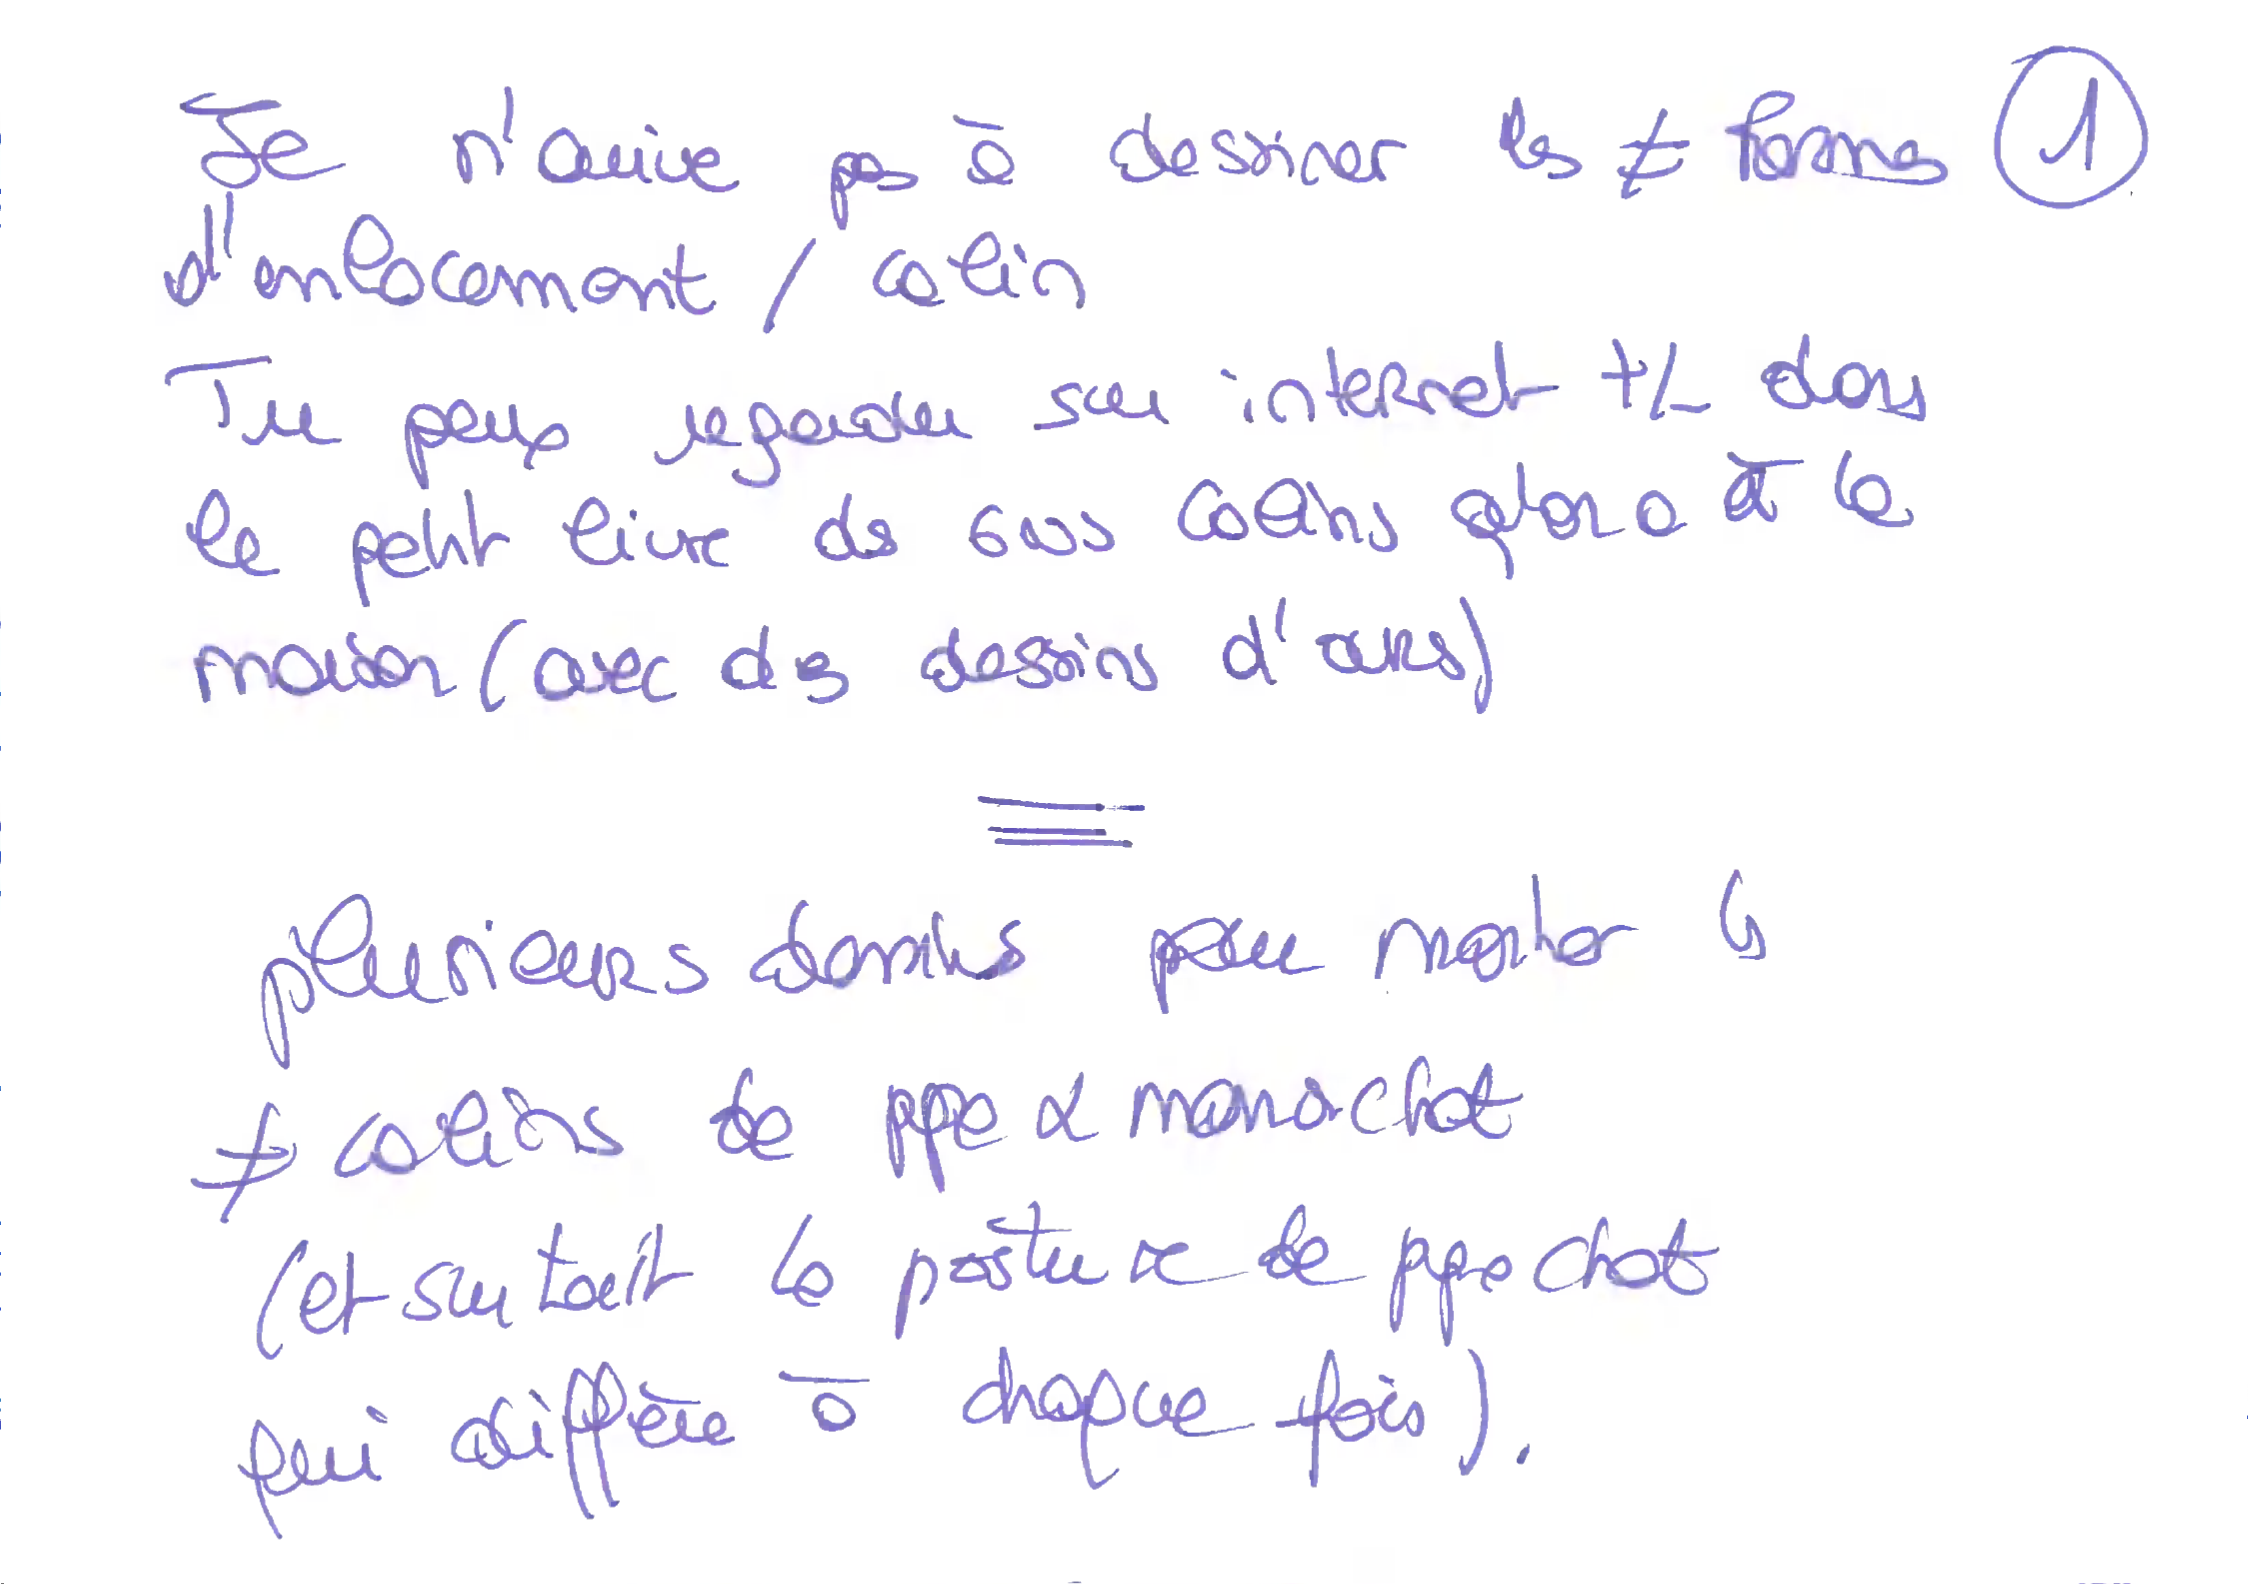 Je n'arrive pas à dessiner les ≠ formes ①
d'enlacement / calin
Tu peux regarder sur internet +/- dans
le petit livre de gros calins qu'on a à la
maison (avec des dessins d'ours)
plusieurs dessins pour montrer les
≠ calins de papa & maman chat
(et surtout la posture de papa chat
qui diffère à chaque fois).